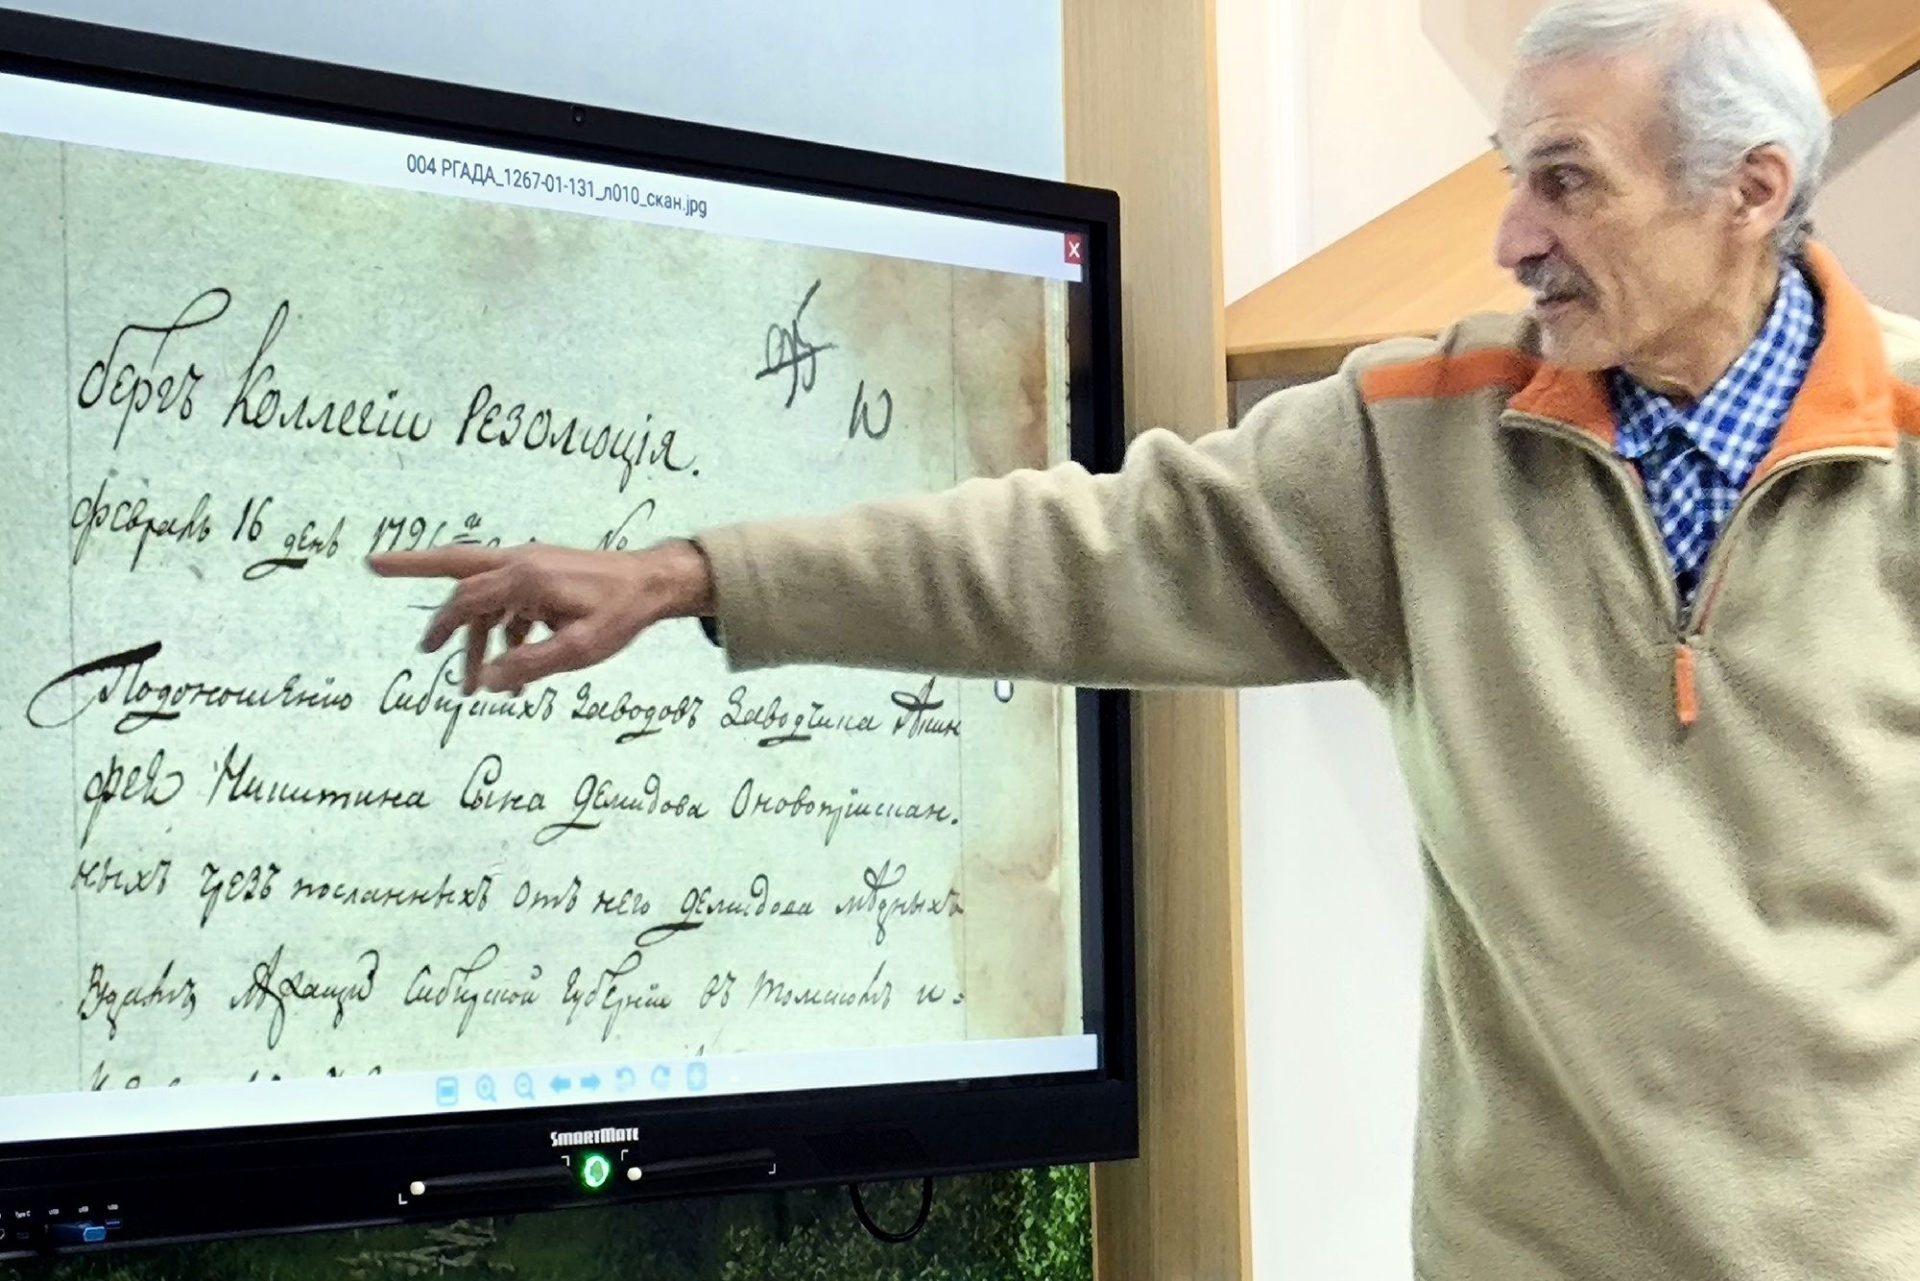 004 РГАДА_1267-01-131_л010_скан.jpg
X
бергъ Коллегіи Резолюція.
10
февраль 16 день №
Подоношенію Сибирскихъ Заводовъ Заводчика Акин
фея Никитина Сына Демидова Оновопріискан.
ныхъ чрезъ посланныхъ отъ него Демидова мѣдныхъ
Сибирской Губерніи въ Томскомъ и
SMARTMATE